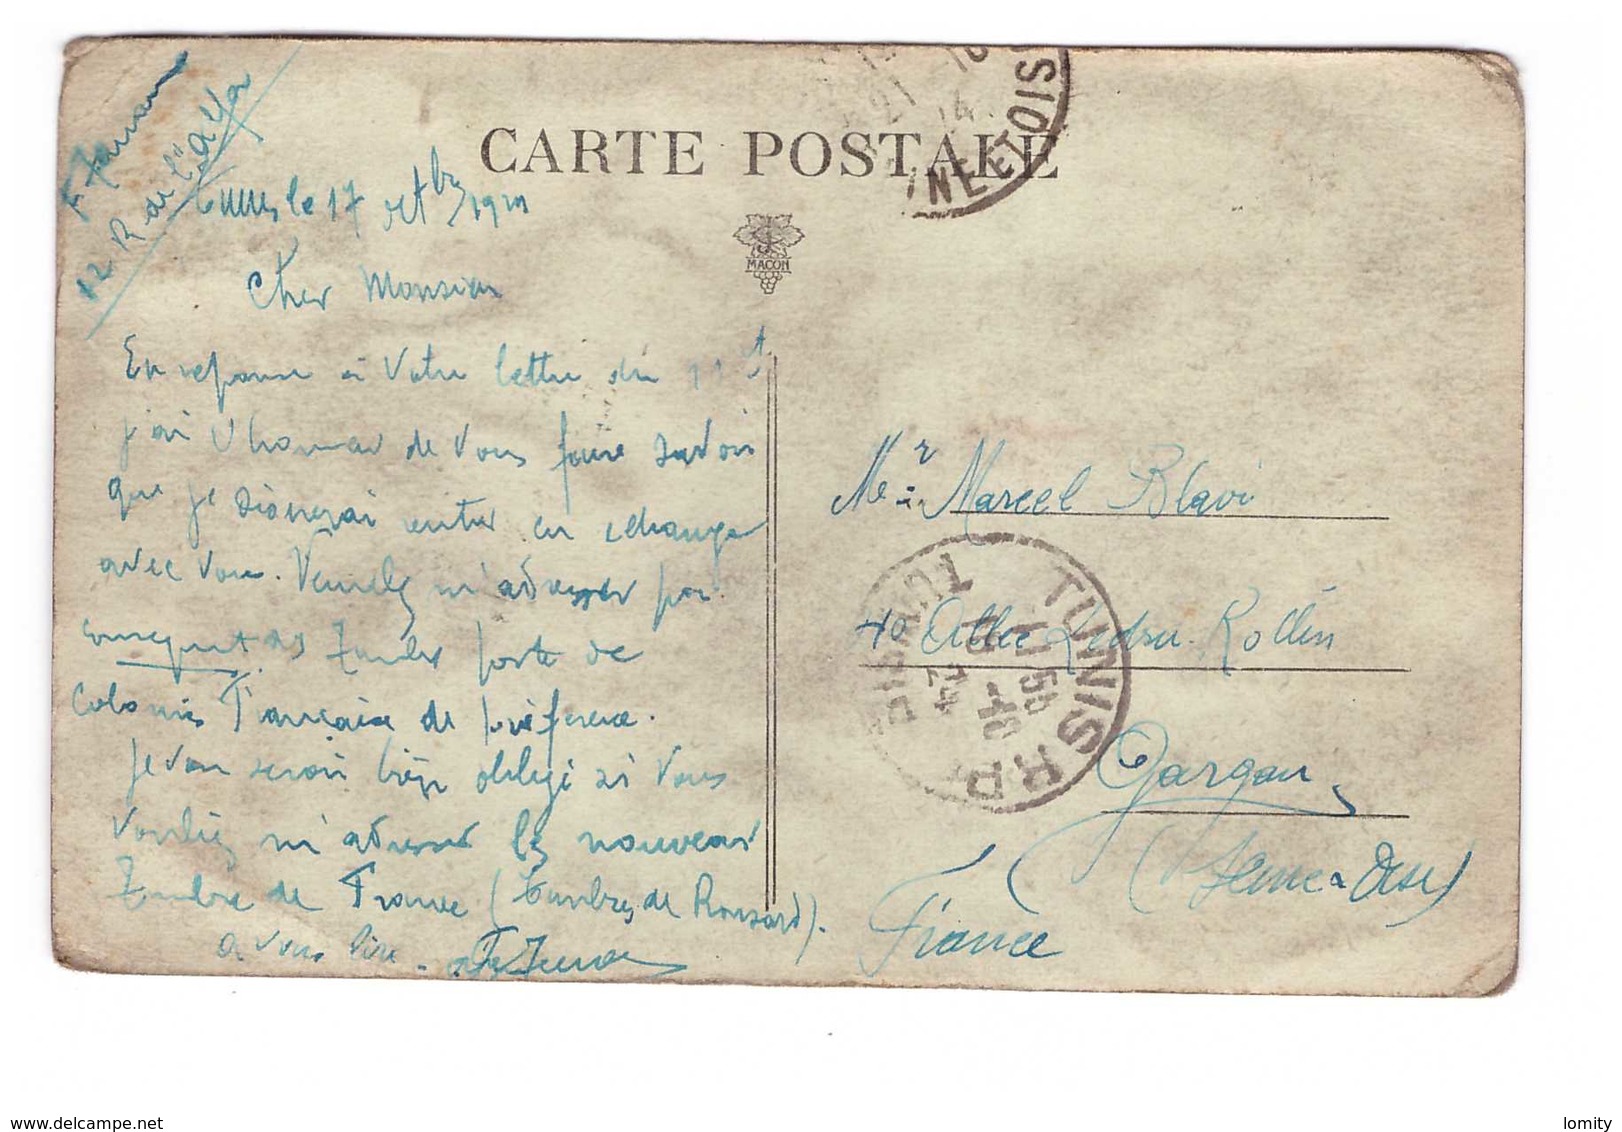 CARTE POSTALE
12 R de l'
Tunis le 17 octbre 19
Cher Monsieur
MACON
En reponse à votre lettre du 11 ct
j'ai l'honneur de vous faire savoir
que je désirerai entrer en echange
avec vous. Veuillez m'adresser par
timbres poste de
Colonies Française de préférence.
Je vous serais bien obligé si vous
vouliez m'adresser les nouveaux
timbre de France (timbres de Ronsard).
a vous lire.
Mr Marcel Blavi
Allée Ledru-Rollin
Gargan
(Seine & Oise)
France
NE ET OISE
TUNIS R.P.
TUNISIE